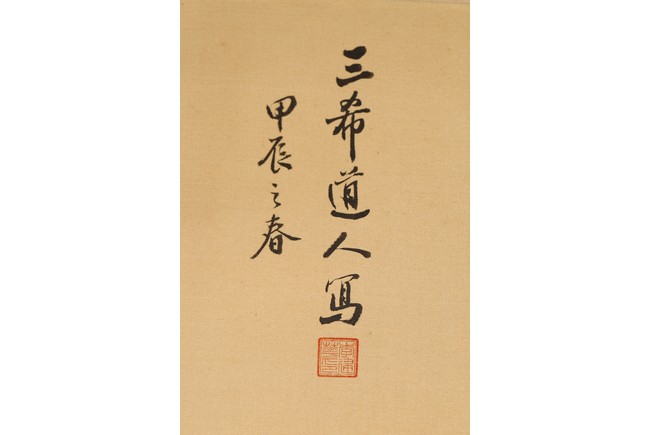 三希道人寫
甲辰之春